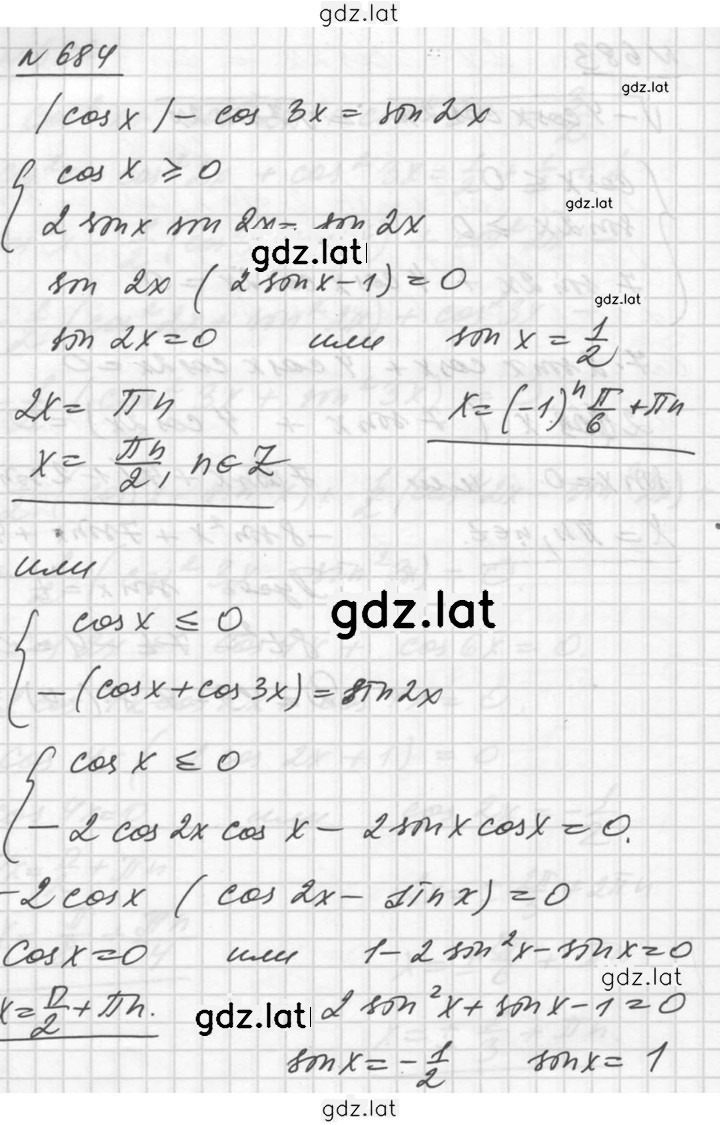 gdz.lat
N 684
gdz.lat
|cos x| - cos 3x = sin 2x
{ cos x ≥ 0
gdz.lat
2 sin x sin 2x = sin 2x
gdz.lat
sin 2x ( 2 sin x - 1) = 0
gdz.lat
sin 2x = 0 или sin x = 1/2
2x = πn x = (-1)^n π/6 + πn
x = πn/2, n ∈ Z
или
gdz.lat
{ cos x ≤ 0
- (cos x + cos 3x) = sin 2x
{ cos x ≤ 0
- 2 cos 2x cos x - 2 sin x cos x = 0.
-2 cos x ( cos 2x - sin x) = 0
cos x = 0 или 1 - 2 sin²x - sin x = 0
gdz.lat
x = π/2 + πn. 2 sin²x + sin x - 1 = 0
gdz.lat
sin x = - 1/2 sin x = 1
gdz.lat